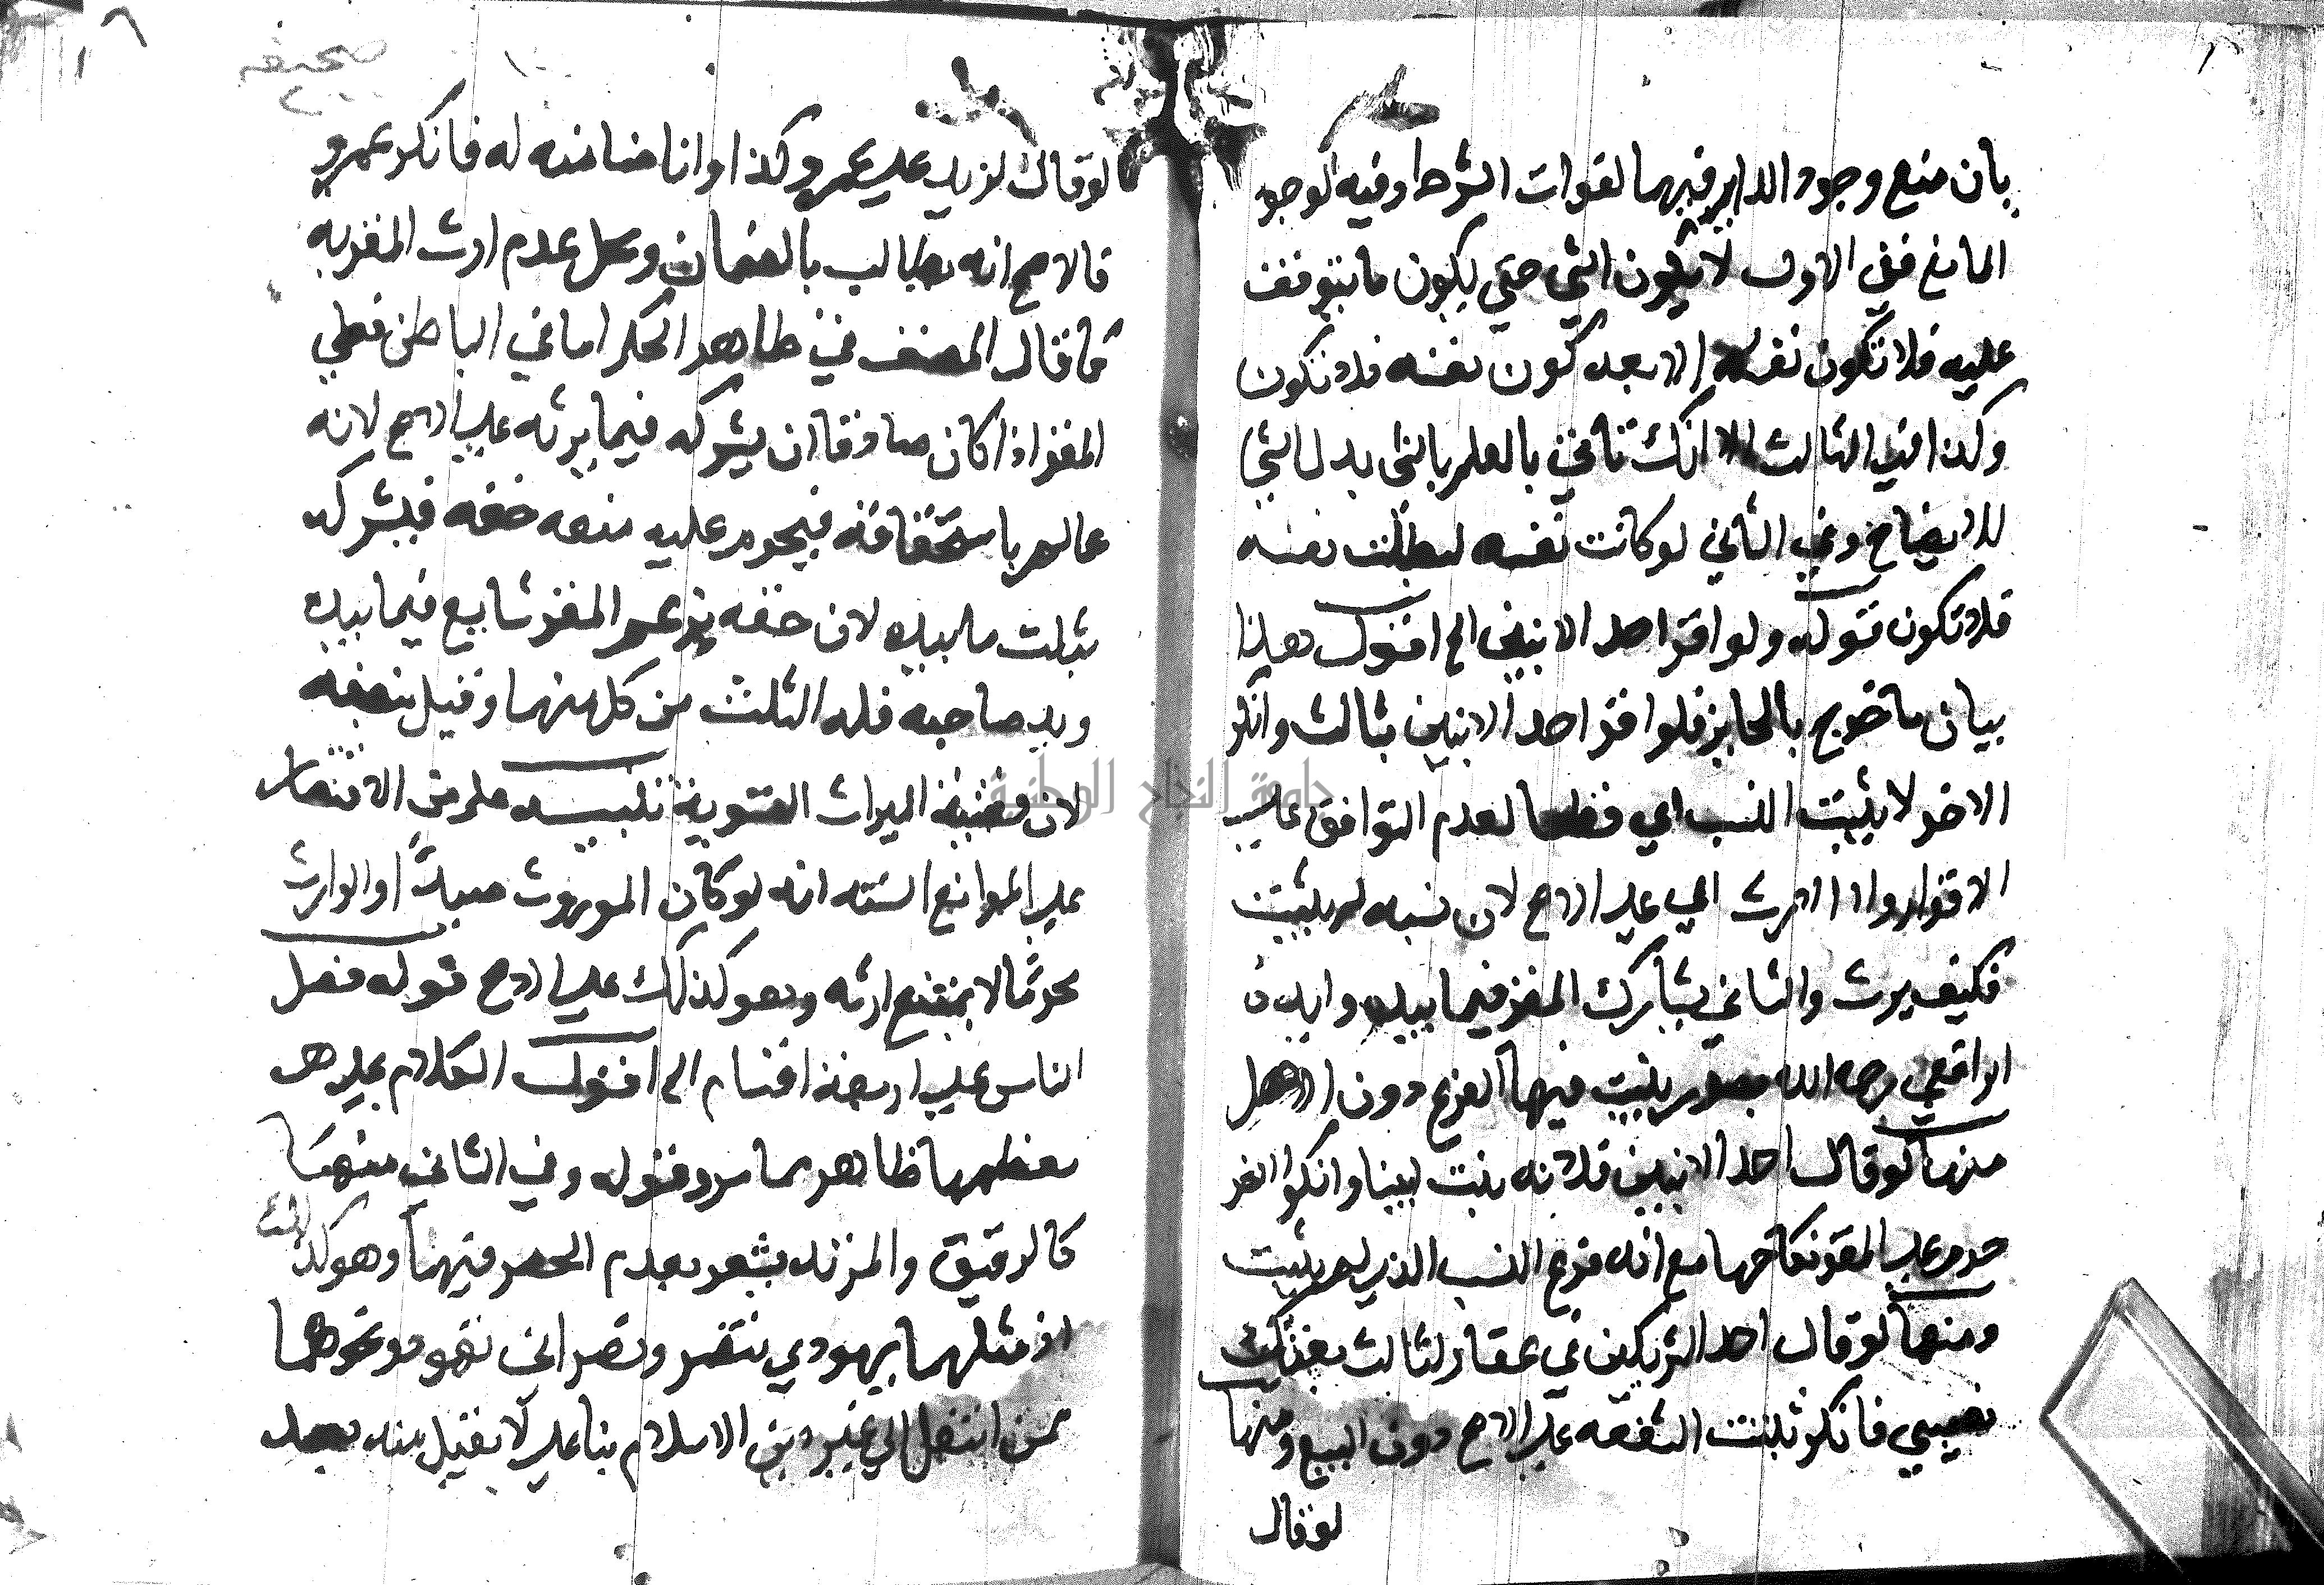 بان منع وجود الداير فيهما لفوات الشرط وفيه لوجود
المانع ففي الاول لا يكون الشي حتي يكون ما يتوقف
عليه فلا تكون نفسه الا بعد كون نفسه فلا تكون
وكذا في الثالث الا انك تاتي بالعلم بالشي بدل الشي
للايضاح وفي الثاني لو كانت نفسه لبطلت نفسه
فلا تكون قوله ولو اقر احد الابنين الخ اقول هذا
بيان ما خرج بالحايز فلو اقر احد الابنين بثالث وانكر
الاخر لا يثبت النسب اي قطعا لعدم التوافق علي
الاقرار ولا الارث اي علي الاصح لان نسبه لم يثبت
فكيف يرث والثاني يشارك المقر فيما بيده وايده
الرافعي رحمه الله بصور يثبت فيها الفرع دون الاصل
منها لو قال احد الابنين فلانه بنت ابينا وانكر الاخر
حرم علي المقر نكاحها مع انه فرع النسب الذي لم يثبت
ومنها لو قال احد الشريكين في عقار لثالث بعتك
نصيبي فانكر ثبتت الشفعه علي الاصح دون البيع ومنها
لو قال
صحيفة
كما لو قال لزيد علي عمرو كذا وانا ضامنه له فانكر عمرو
فالاصح انه يطالب بالضمان ومحل عدم ارث المقر به
كما قال المصنف في ظاهر الحكم اما في الباطن فعلي
المقر اذا كان صادقا ان يشركه فيما يرثه علي الاصح لانه
عالم باستحقاقه فيحرم عليه منعه حقه فيشركه
بثلث ما بيده لان حقه بزعم المقر شايع فيما بيده
ويد صاحبه فله الثلث من كل منهما وقيل بنصفه
لان قضية الميراث التسوية تنبيه علم من الاقتصار
علي الموانع الستة انه لو كان الموروث صيدا والوارث
محرما لا يمتنع ارثه وهو كذلك علي الاصح قوله فصل
الناس علي اربعة اقسام الخ اقول الكلام عليها
معظمها ظاهر مما مر وقوله وفي الثاني منهما
كالرقيق والمرتد يشعر بعدم الحصر فيهما وهو كذلك
اذ مثلهما يهودي تنصر ونصراني تهود ونحوهما
ممن انتقل الي غير دين الاسلام بنا علي لا يقبل منه بعد